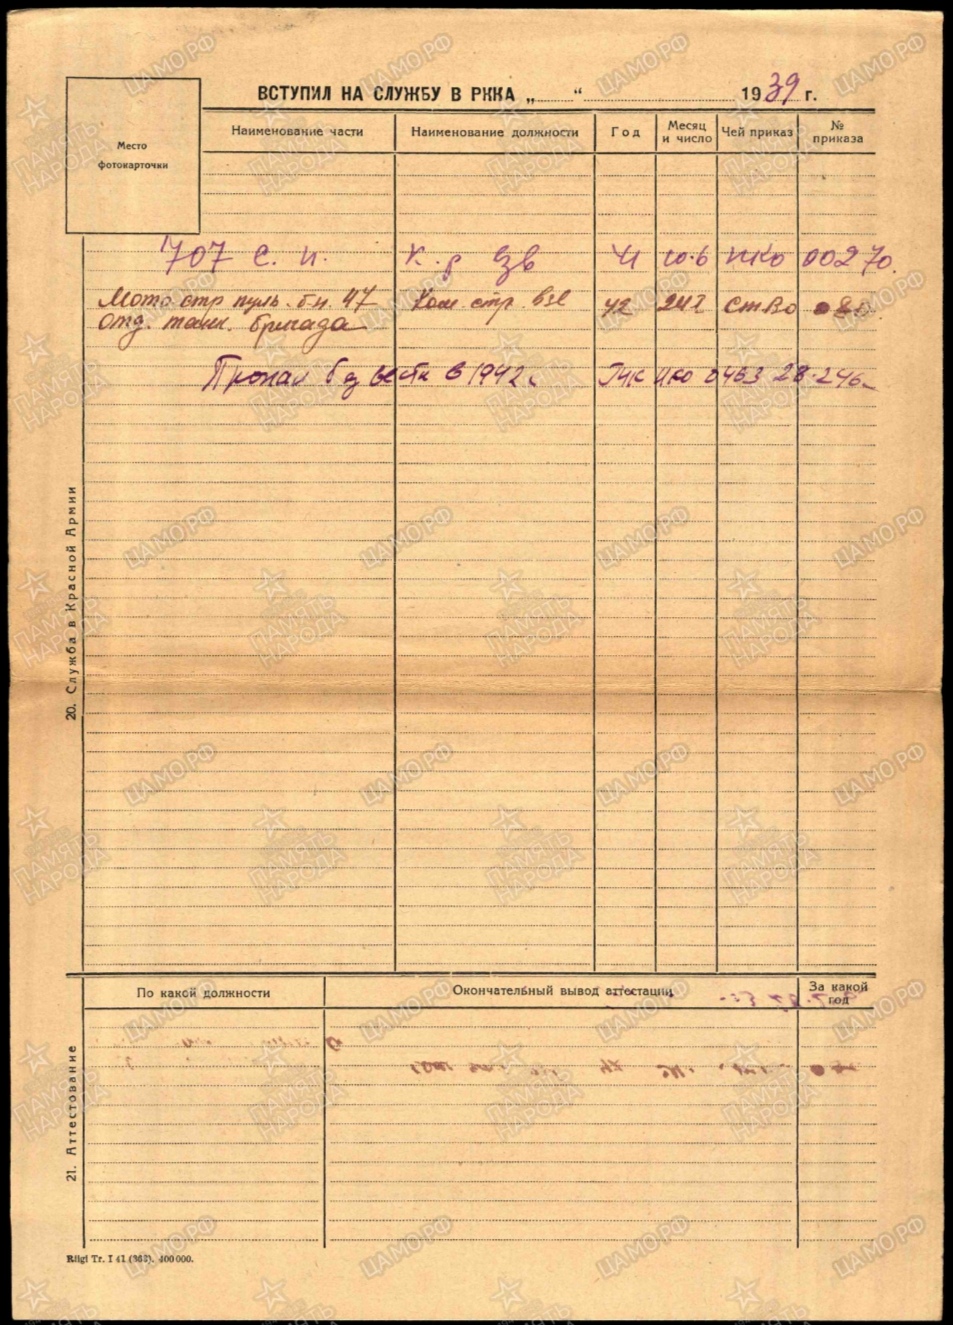 ВСТУПИЛ НА СЛУЖБУ В РККА „ “ 1939 г.
Место
фотокарточки
Наименование части Наименование должности Год Месяц и число Чей приказ № приказа
707 с. п. К-р Зв 41 10.6 НКО 00270.
Мото стр пуль. б-н. 47 Ком. стр. взв 42 24.1 СТВО
отд. танк. бригада
Пропал без вести в 1942 г. ГУК НКО 0463 28.2.46
20. Служба в Красной Армии
По какой должности Окончательный вывод аттестации За какой год
21. Аттестование
Riigi Tr. I 41 (363). 400 000.
ЦАМО.РФ
ПАМЯТЬ
НАРОДА